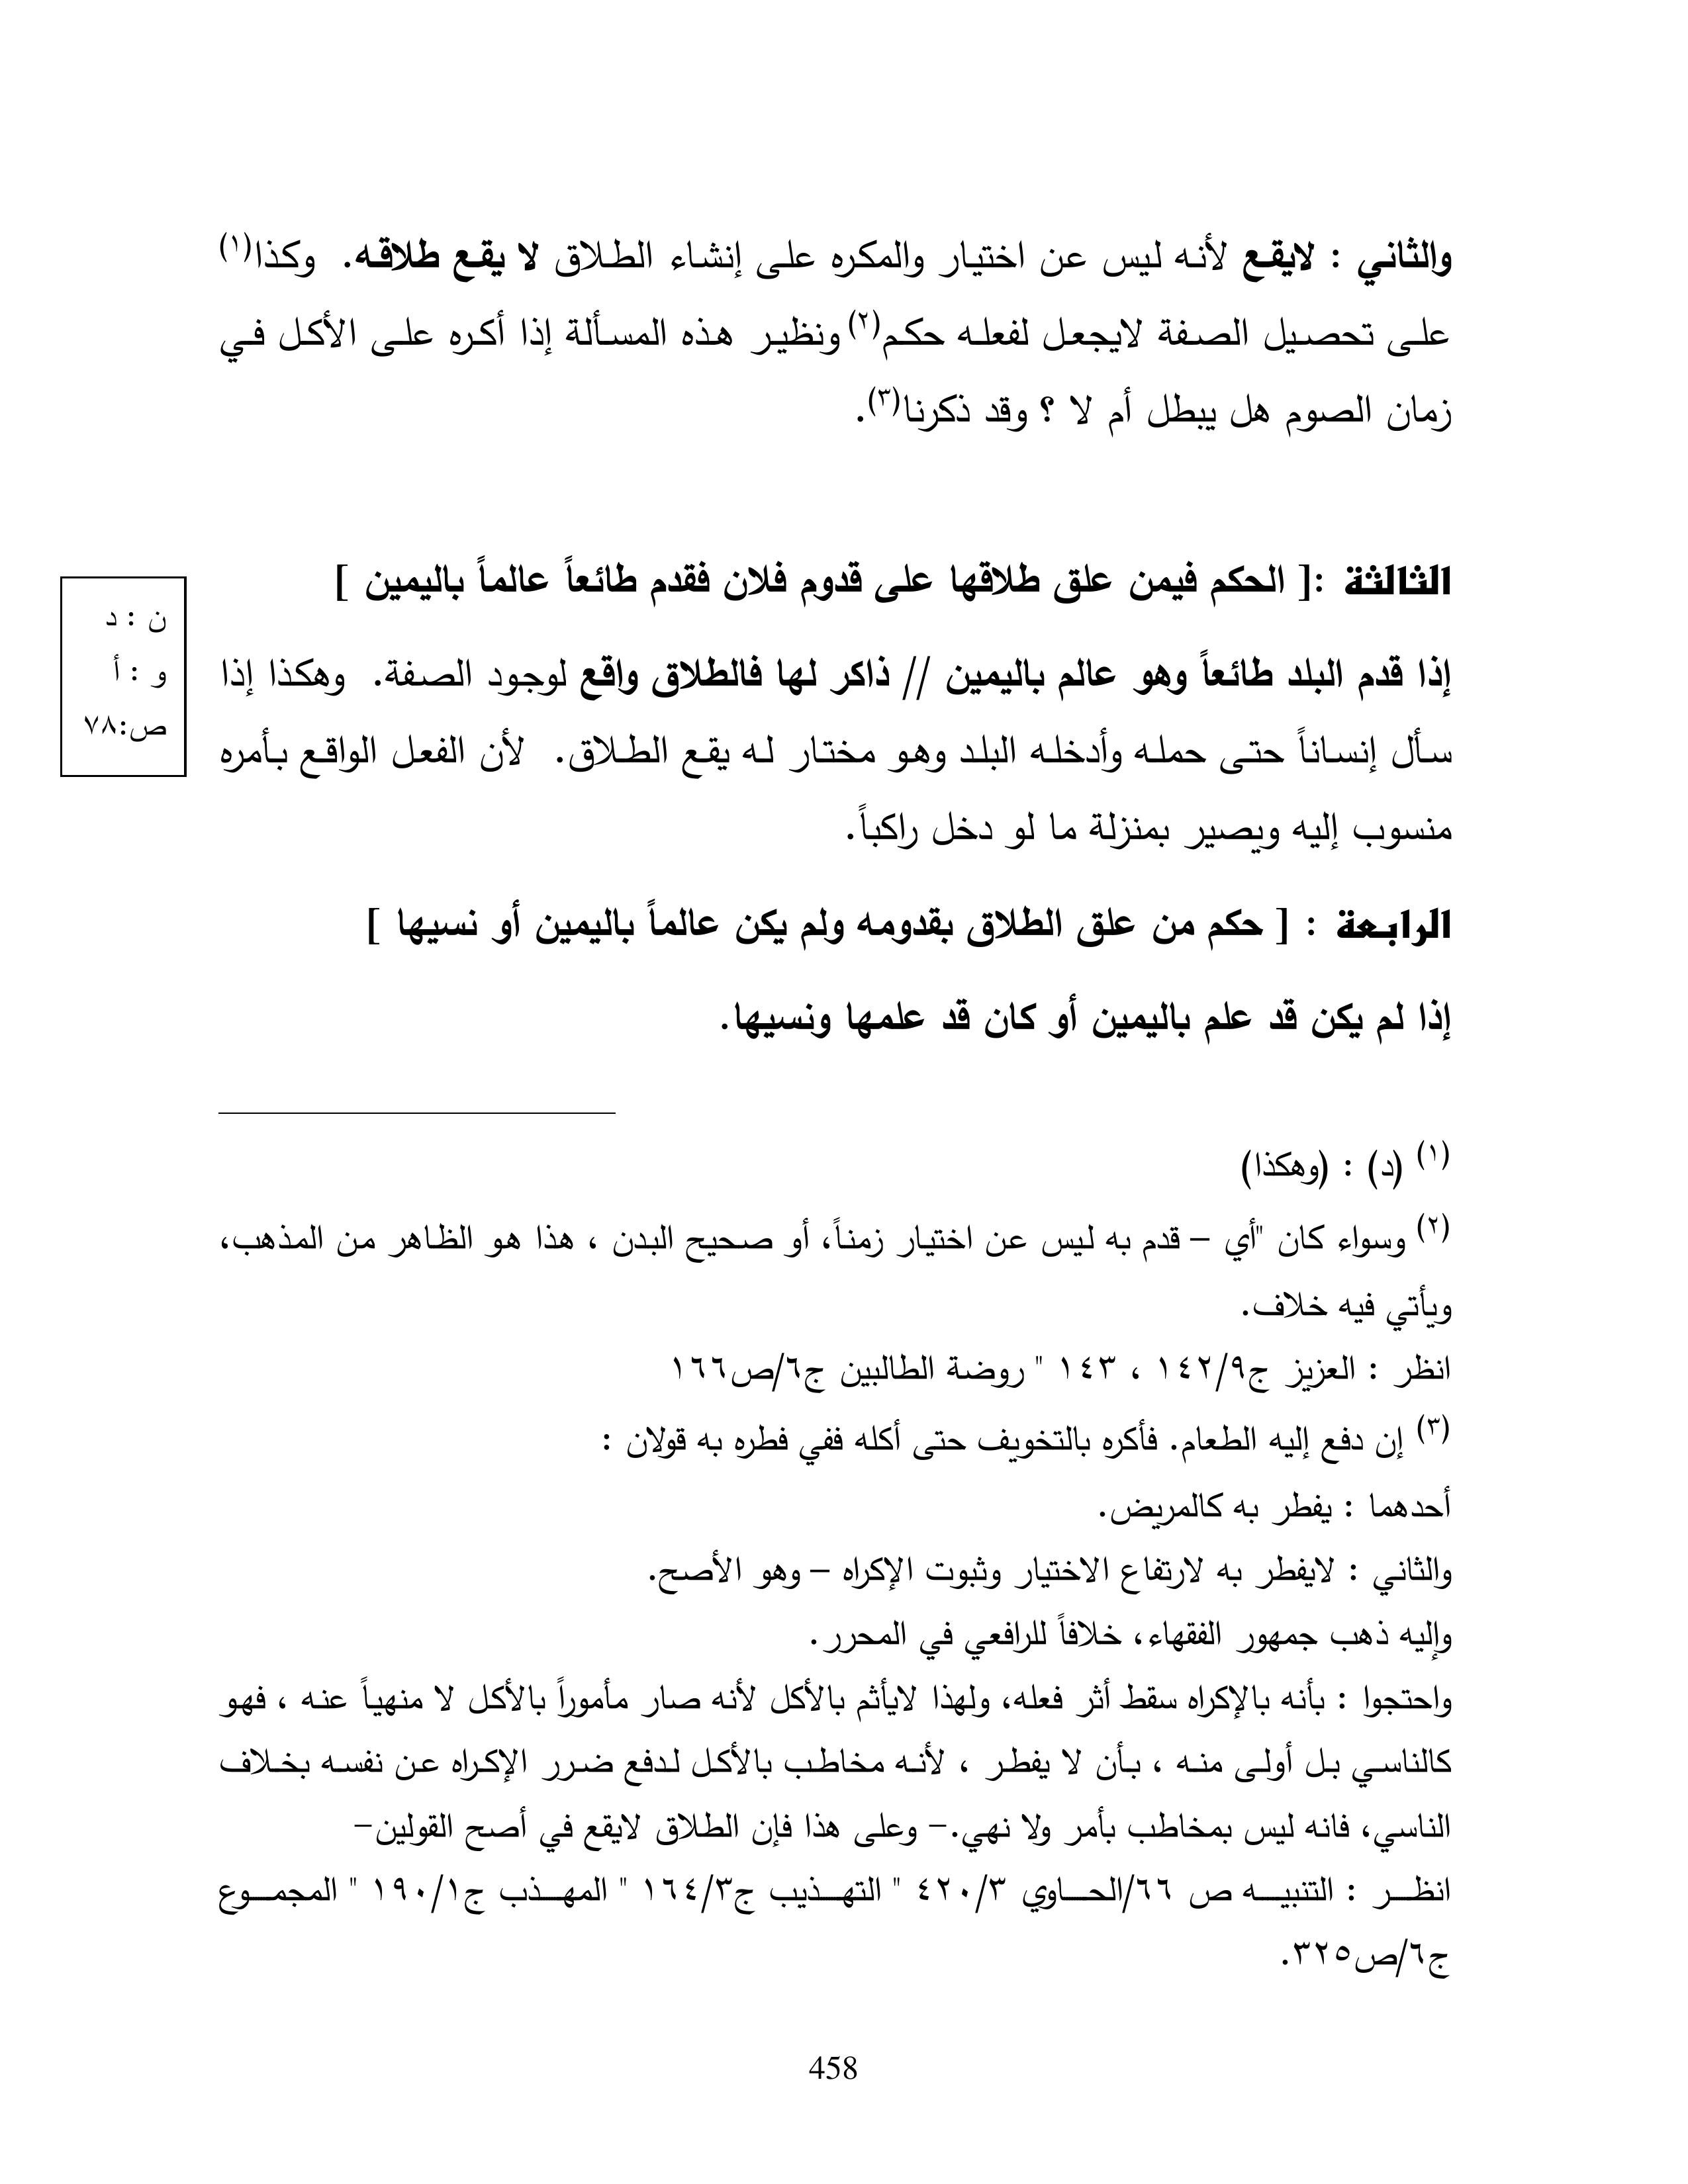 والثاني : لايقع لأنه ليس عن اختيار والمكره على إنشاء الطلاق لا يقع طلاقه. وكذا(١)
على تحصيل الصفة لايجعل لفعله حكم(٢) ونظير هذه المسألة إذا أكره على الأكل في
زمان الصوم هل يبطل أم لا ؟ وقد ذكرنا(٣).
الثالثة :[ الحكم فيمن علق طلاقها على قدوم فلان فقدم طائعاً عالماً باليمين ]
ن : د
و : أ
ص:٧٨
إذا قدم البلد طائعاً وهو عالم باليمين // ذاكر لها فالطلاق واقع لوجود الصفة. وهكذا إذا
سأل إنساناً حتى حمله وأدخله البلد وهو مختار له يقع الطلاق. لأن الفعل الواقع بأمره
منسوب إليه ويصير بمنزلة ما لو دخل راكباً.
الرابعة : [ حكم من علق الطلاق بقدومه ولم يكن عالماً باليمين أو نسيها ]
إذا لم يكن قد علم باليمين أو كان قد علمها ونسيها.
(١) (د) : (وهكذا)
(٢) وسواء كان "أي – قدم به ليس عن اختيار زمناً، أو صحيح البدن ، هذا هو الظاهر من المذهب،
ويأتي فيه خلاف.
انظر : العزيز ج٩/١٤٢ ، ١٤٣ " روضة الطالبين ج٦/ص١٦٦
(٣) إن دفع إليه الطعام. فأكره بالتخويف حتى أكله ففي فطره به قولان :
أحدهما : يفطر به كالمريض.
والثاني : لايفطر به لارتفاع الاختيار وثبوت الإكراه – وهو الأصح.
وإليه ذهب جمهور الفقهاء، خلافاً للرافعي في المحرر.
واحتجوا : بأنه بالإكراه سقط أثر فعله، ولهذا لايأثم بالأكل لأنه صار مأموراً بالأكل لا منهياً عنه ، فهو
كالناسي بل أولى منه ، بأن لا يفطر ، لأنه مخاطب بالأكل لدفع ضرر الإكراه عن نفسه بخلاف
الناسي، فانه ليس بمخاطب بأمر ولا نهي.– وعلى هذا فإن الطلاق لايقع في أصح القولين–
انظر : التنبيه ص ٦٦/الحاوي ٤٢٠/٣ " التهذيب ج١٦٤/٣ " المهذب ج١٩٠/١ " المجموع
ج٦/ص٣٢٥.
458